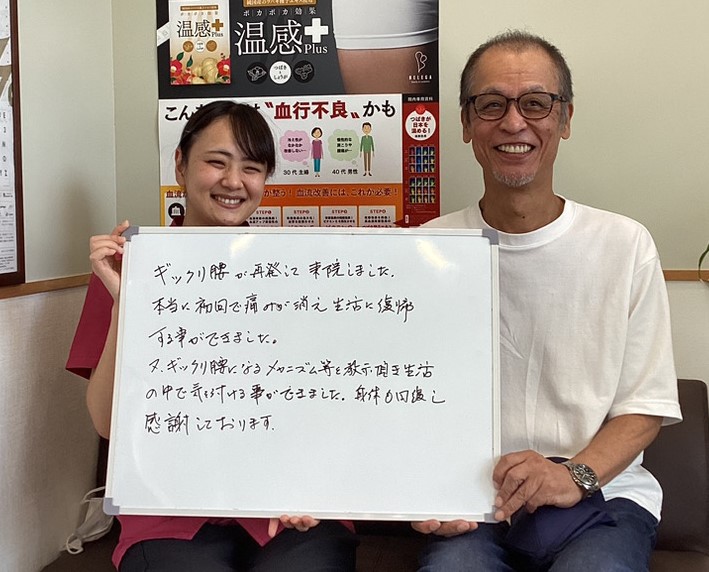 温感+
Plus
ポカポカ効果
温感+
Plus
つばき
しょうが
BELEGA
こん
"血行不良"かも
30代 主婦
40代 男性
つばきが
日本を
温める!
血流
整う!血流改善には、これが必要!
STEP
STEP
STEP
ギックリ腰が再発して来院しました。
本当に初回で痛みが消え生活に復帰
する事ができました。
又、ギックリ腰になるメカニズム等を教示頂き生活
の中で気を付ける事ができました。身体も回復し
感謝しております。